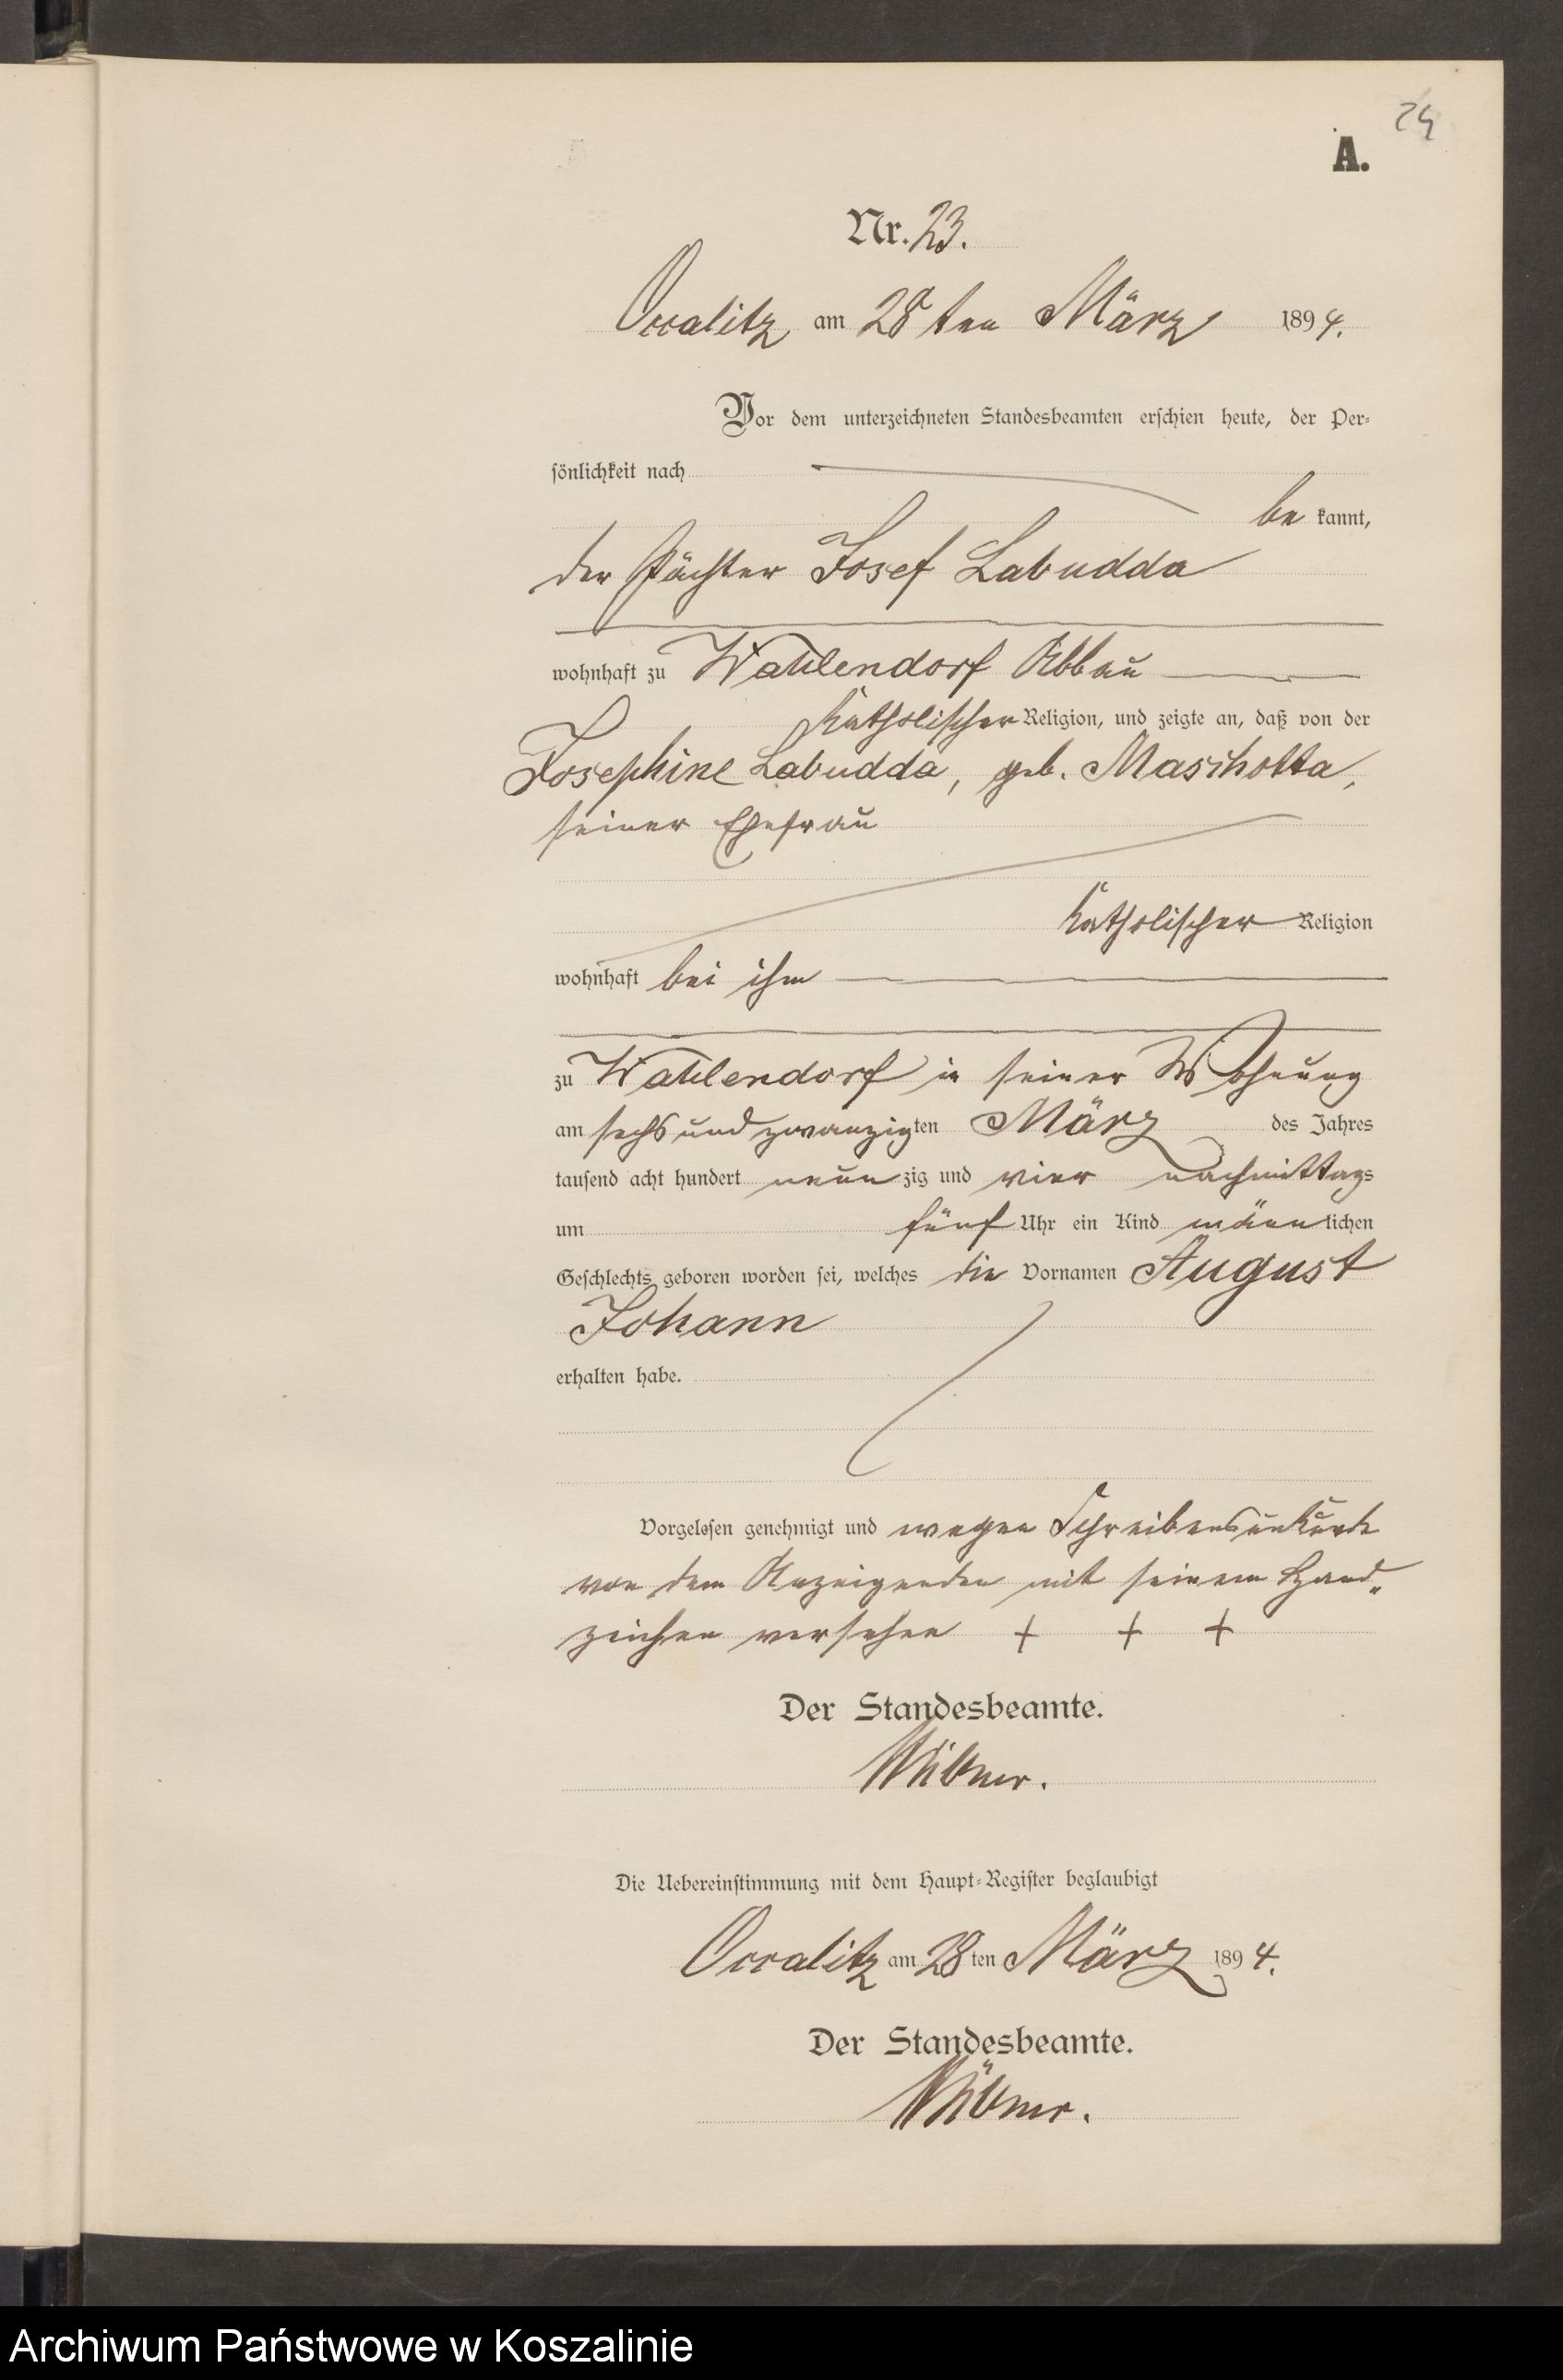 24
A.
Nr. 23.
Occalitz am 28ten März 1894.
Vor dem unterzeichneten Standesbeamten erschien heute, der Per-
sönlichkeit nach
be kannt,
der Pächter Josef Labudda
wohnhaft zu Wahlendorf Abbau
katholischer Religion, und zeigte an, daß von der
Josephine Labudda, geb. Maschotta,
seiner Ehefrau
katholischer Religion
wohnhaft bei ihm
zu Wahlendorf in seiner Wohnung
am sechs und zwanzigten März des Jahres
tausend acht hundert neunzig und vier nachmittags
um fünf Uhr ein Kind männlichen
Geschlechts geboren worden sei, welches die Vornamen August
Johann
erhalten habe.
Vorgelesen genehmigt und wegen Schreibensunkunde
von dem Anzeigenden mit seinem Hand-
zeichen versehen + + +
Der Standesbeamte.
Die Uebereinstimmung mit dem Haupt-Register beglaubigt
Occalitz am 28ten März 1894.
Der Standesbeamte.
Archiwum Państwowe w Koszalinie